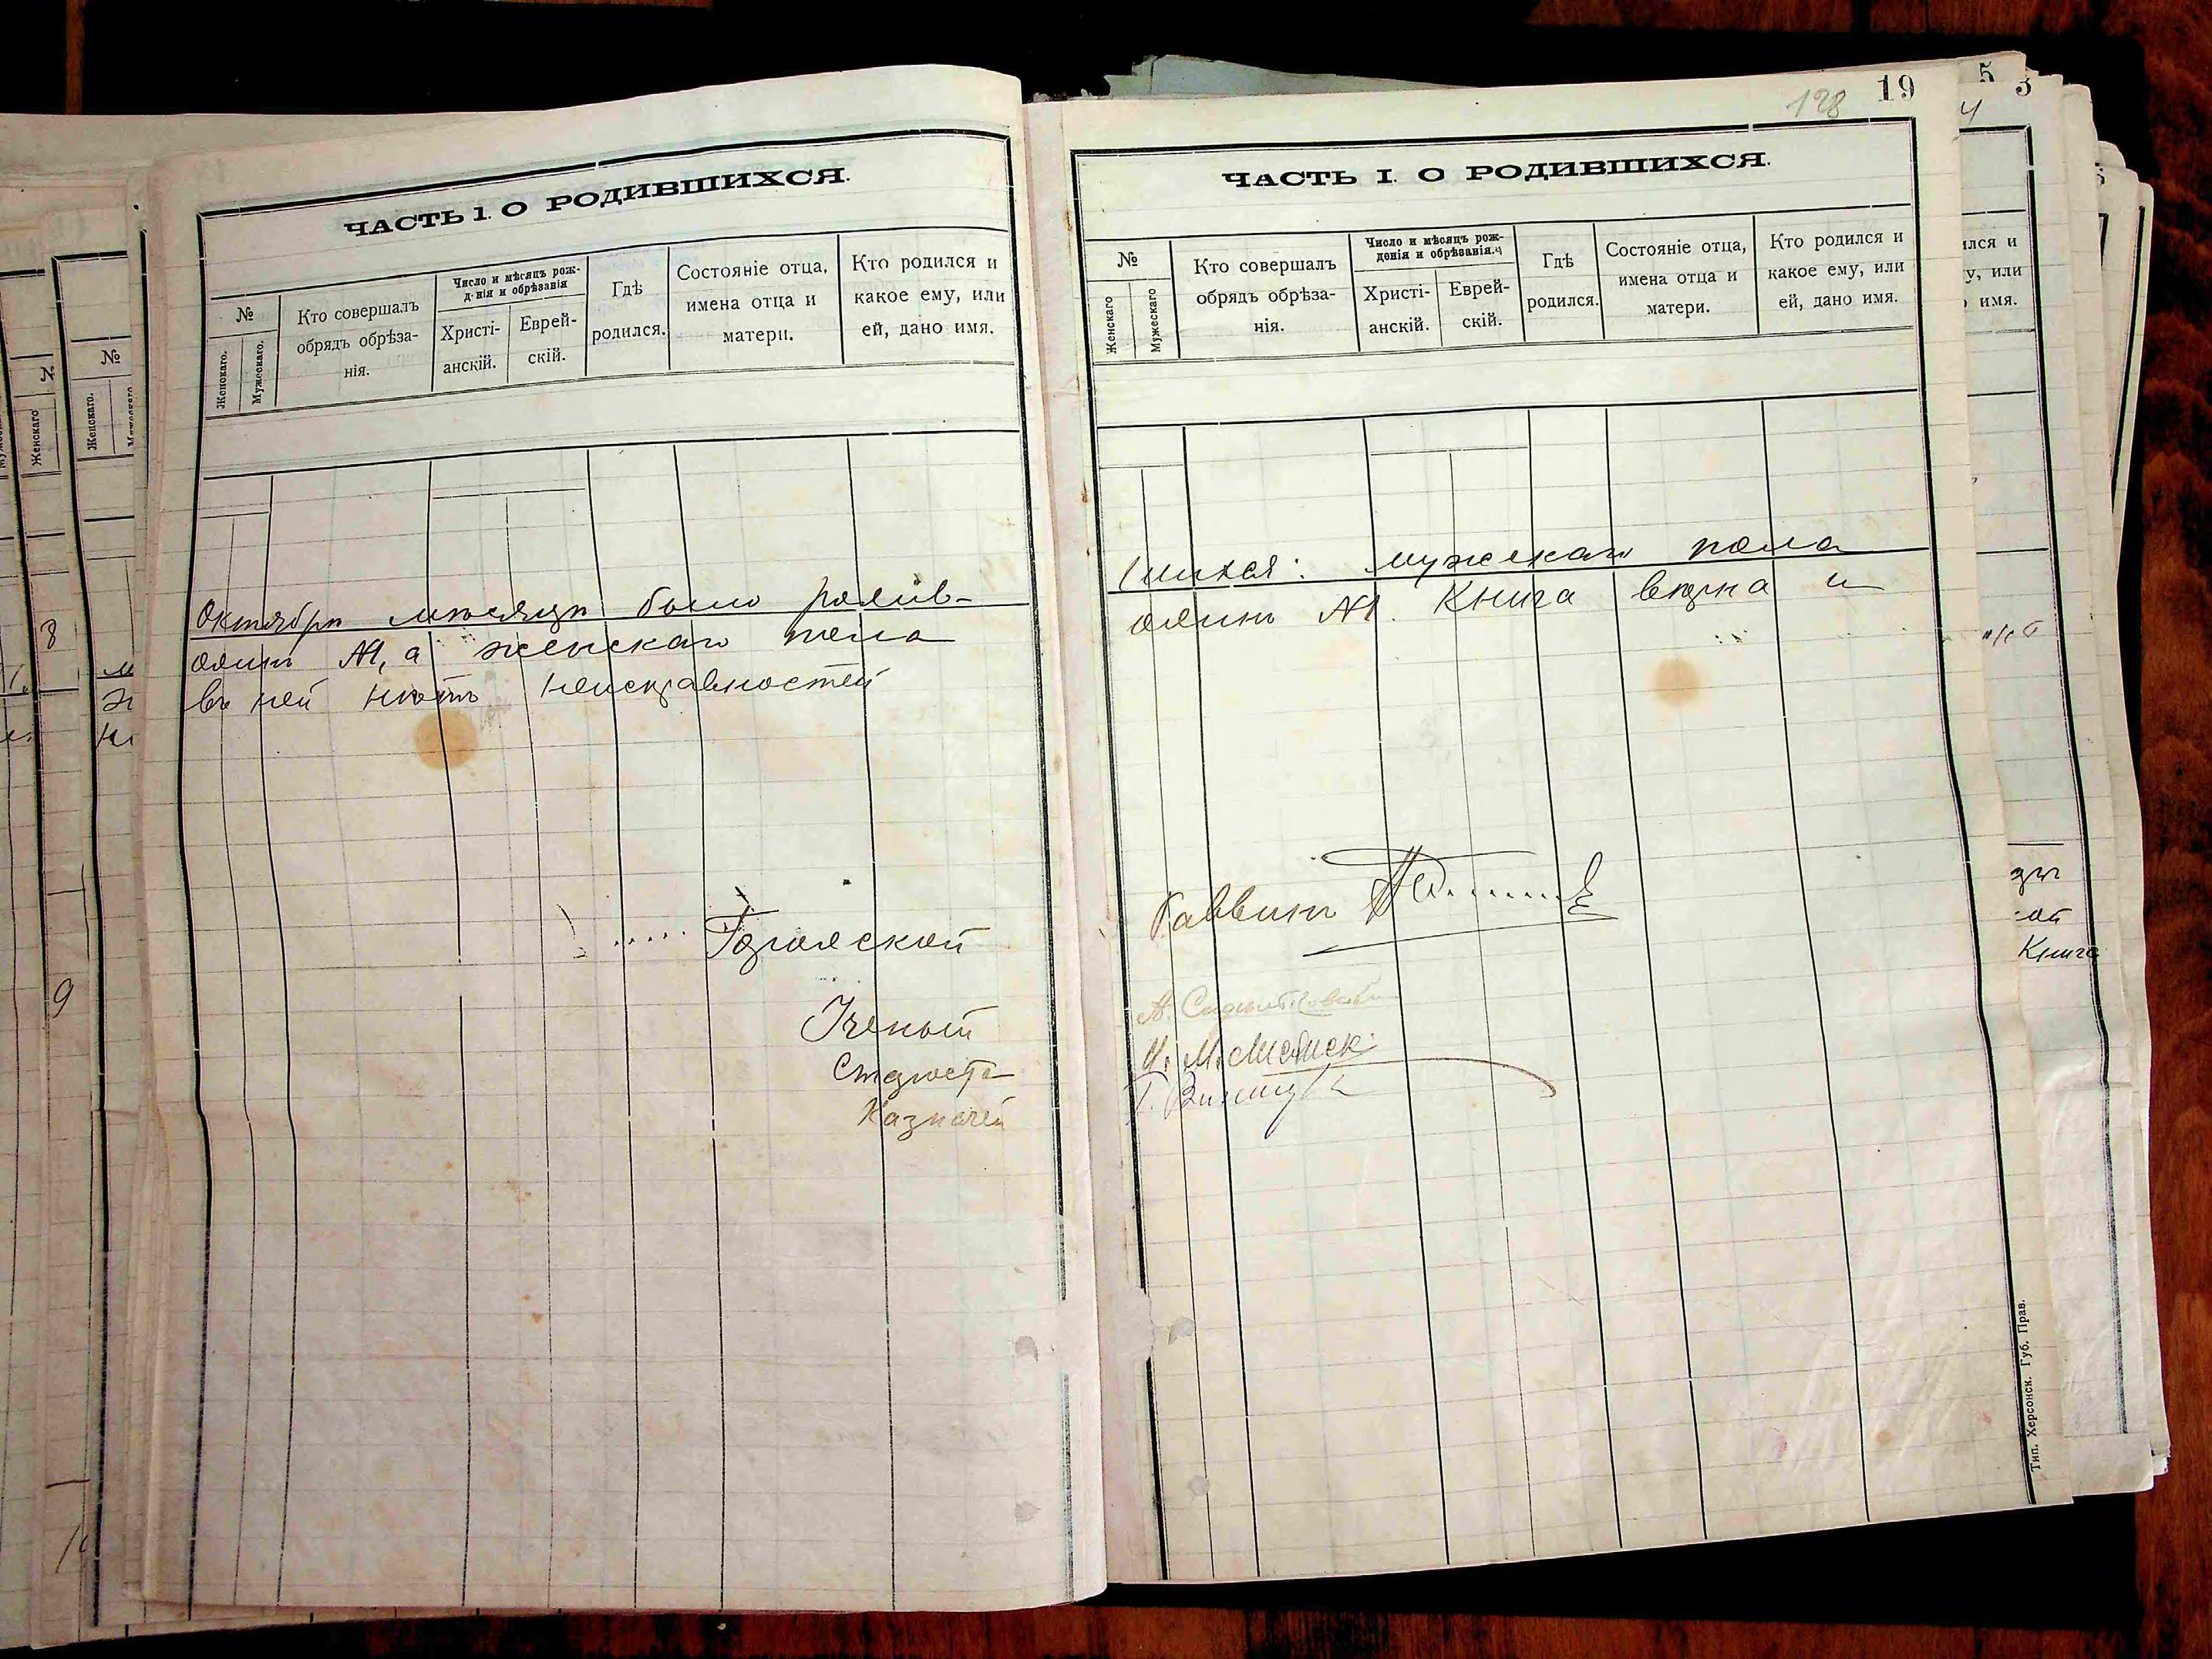 ЧАСТЬ 1. О РОДИВШИХСЯ.
№
Женскаго.
Мужескаго.
Кто совершалъ
обрядъ обрѣза-
нія.
Число и мѣсяцъ рож-
д-нія и обрѣзанія
Христі-
анскій.
Еврей-
скій.
Гдѣ
родился.
Состояніе отца,
имена отца и
матери.
Кто родился и
какое ему, или
ей, дано имя.
Октября мѣсяца было родив-
одинъ №1, а женскаго пола
въ ней нѣтъ неисправностей
Городской
Ученый
Староста
Казначей
128
19
ЧАСТЬ I. О РОДИВШИХСЯ.
№
Женскаго
Мужескаго
Кто совершалъ
обрядъ обрѣза-
нія.
Число и мѣсяцъ рож-
денія и обрѣзанія.
Христі-
анскій.
Еврей-
скій.
Гдѣ
родился.
Состояніе отца,
имена отца и
матери.
Кто родился и
какое ему, или
ей, дано имя.
шихся: мужескаго пола
одинъ №1. Книга вѣрна и
Раввинъ
Тип. Херсонск. Губ. Прав.
5
3
4
лся и
у, или
имя.
Книга
№
Женскаго
№
Женскаго.
8
9